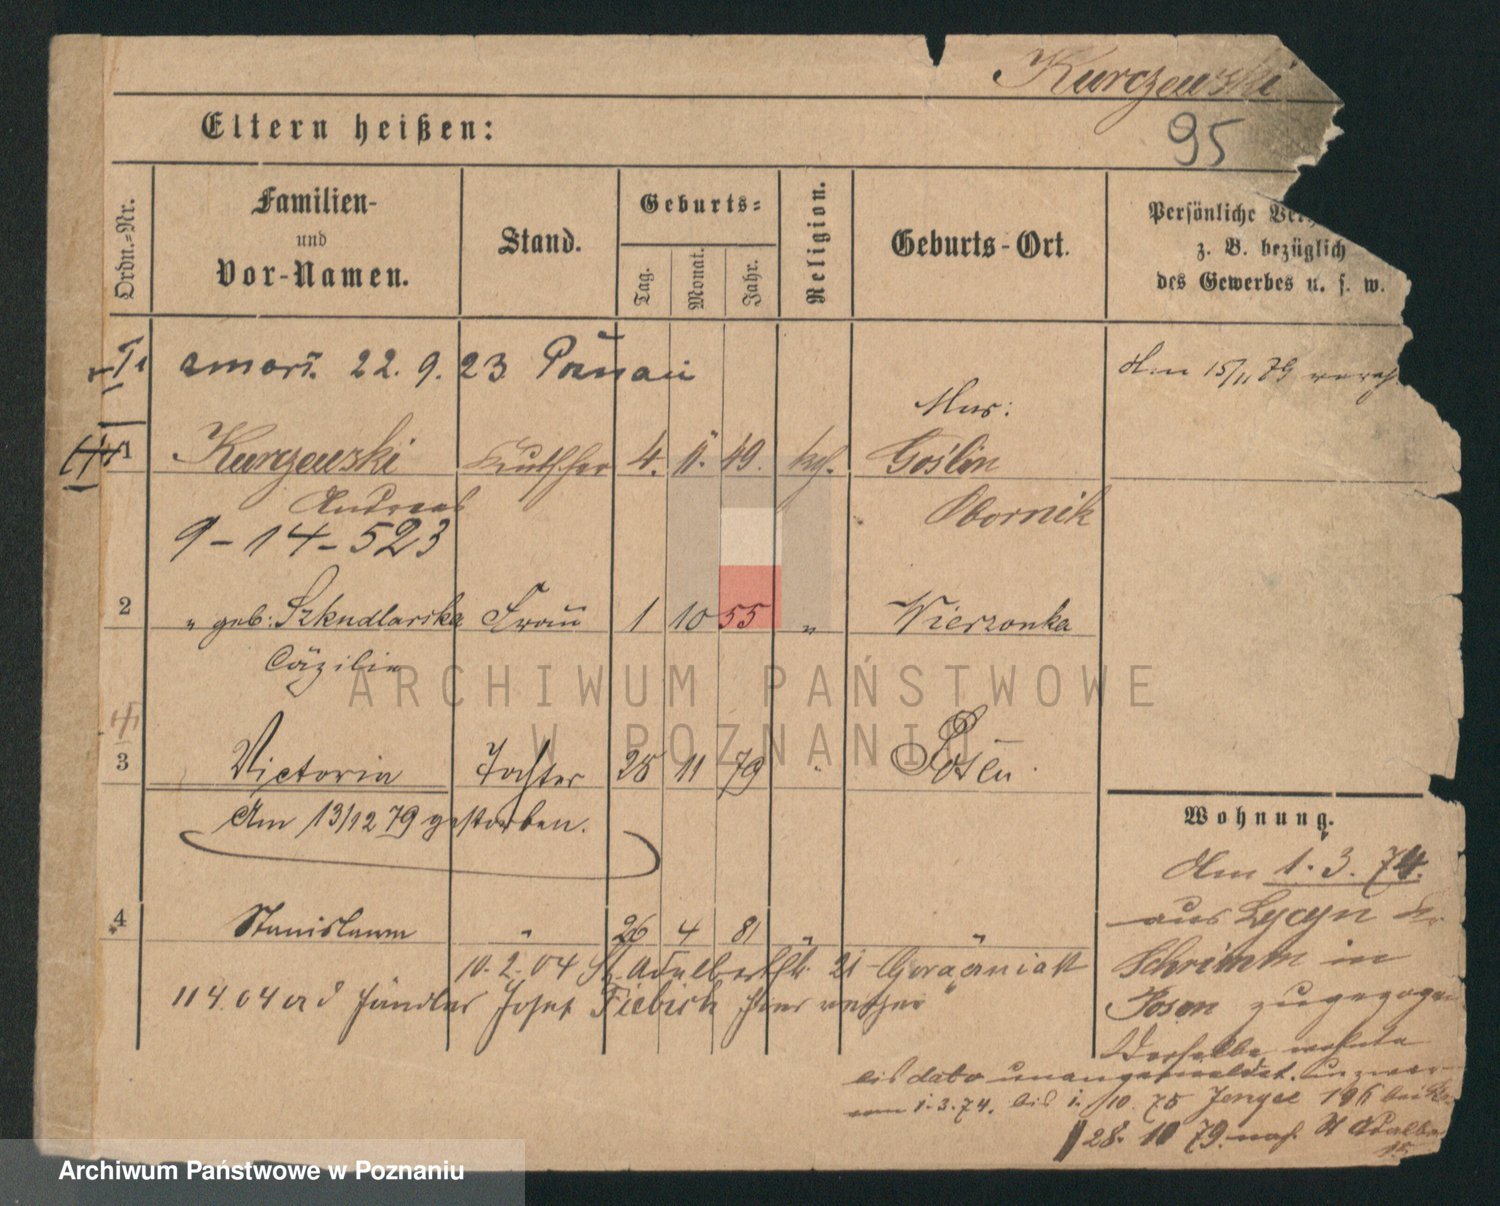 Kurczewski
95
Eltern heißen:
Ordn.-Nr.
Familien-
und
Vor-Namen.
Stand.
Geburts=
Tag.
Monat.
Jahr.
Religion.
Geburts-Ort.
Persönliche Ver
z. B. bezüglich
des Gewerbes u. s. w.
zmarł. 22. 9. 23 Poznań
Am 15/11 79
Mur:
1 Kurczewski 4. 11. 49. kgl. Goślin
Andreas Obornik
9-14-523
2 " geb: Szkudlarska Frau 1 10 55 " Wierzonka
Cäzilie
ARCHIWUM PAŃSTWOWE
W POZNANIU
3 Victoria Tochter 25 11 79 Posen
Am 13/12 79 gestorben.
Wohnung.
Am 1. 3. 74.
4 Stanislaum " 26 4 81 "
aus Lycyn Kr
10. 2. 04 St. Adalbertstr. 21
Schrimm in
11 4. 04 Händler Josef Fiebich
Posen zugezogen
Derselbe wohnte
bis dato unangemeldet.
vom 1. 3. 74. bis 1. 10. 75
28. 10 79. nach St Adalb
15
Archiwum Państwowe w Poznaniu